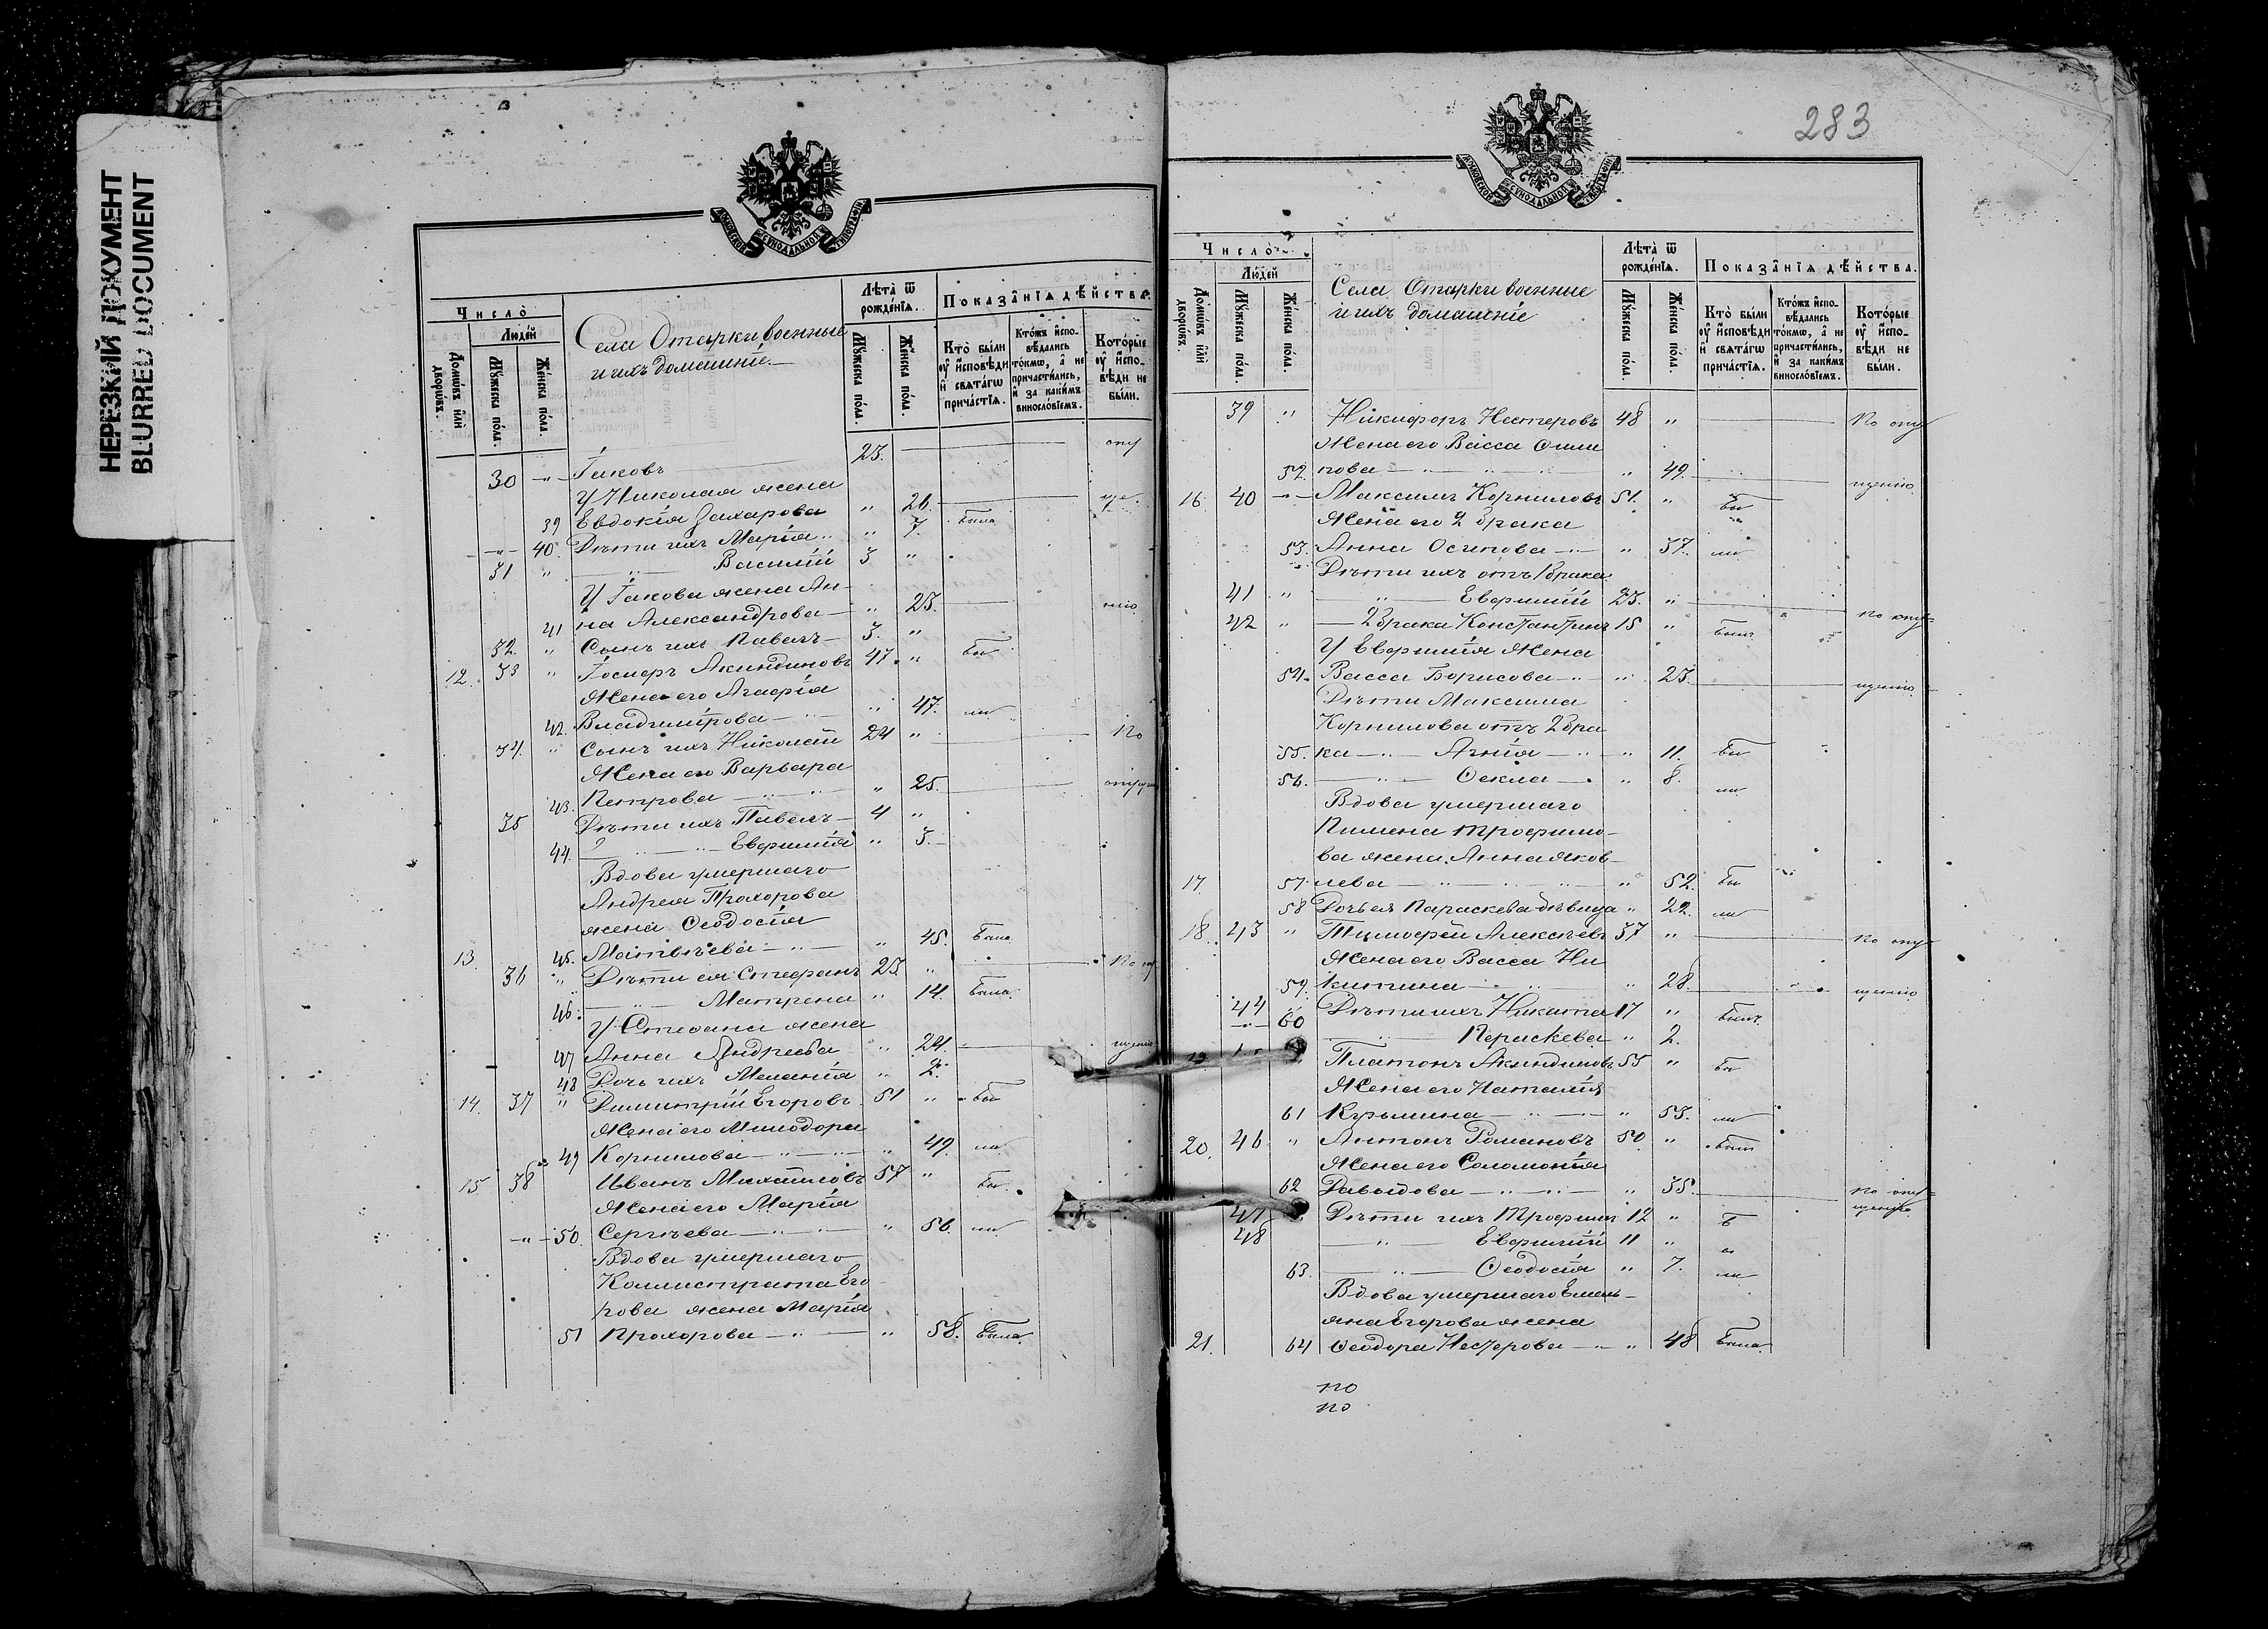 НЕРЕЗКИЙ ДОКУМЕНТ
BLURRED DOCUMENT
МОСКОВСКОЙ СѴНОДАЛЬНОЙ ТИПОГРАФІИ
Число̀
Людей
Домѡвъ или дворѡвъ.
Мꙋжеска пола.
Женска пола.
Села Отарки военные
и ихъ домашніе
Лѣта̀ ѿ рожденїѧ.
Мꙋжеска пола.
Женска пола.
Показанїѧ дѣйства.
Кто̀ были ᲂу҆ исповѣди и свѧтагѡ причастїѧ.
Ктожъ исповѣдались токмѡ, а не причастились, и за какимъ винословїемъ.
Которые ᲂу҆ исповѣди не были.
30 -"- Іаковъ 23. опу
У Николая жена
39 Евдокія Захарова " 26. ще
-"- 40. Дѣти ихъ Марія " " 7. была
31 " Василій 3 "
У Іакова жена Ан-
41 на Александрова " 25. нію
32. " Сынъ ихъ Павелъ 3. "
12. 33 " Іосифъ Акиндиновъ 47. " бы
Жена его Агафія
42. Владимірова " 47. ли
34. " Сынъ ихъ Николай 24 " По
Жена его Варвара
43. Петрова " 25. опуще
35 Дѣти ихъ Павелъ 4 "
44. Евфимія " 3.
Вдова умершаго
Андрея Прохорова
жена Ѳеодосія
13. 45. Матвѣева " 45. была
36 " Дѣти ея Стефанъ 25 " По оп
46. Матрена " 14. была.
У Стефана жена
47 Анна Андреева " 24. щенію
48 Дочь ихъ Меланія " 2.
14. 37 " Димитрій Егоровъ 51 " бы
Жена его Минодора
49 Корнилова " 49. ли
15 38 Иванъ Михайловъ 57 " бы
Жена его Марія
-"- 50. Сергѣева " 56. ли
Вдова умершаго
Каллистрата Его
рова жена Марія
51 Прохорова " 58. была
283
МОСКОВСКОЙ СѴНОДАЛЬНОЙ ТИПОГРАФІИ
Число̀
Людей
Домѡвъ или дворѡвъ.
Мꙋжеска пола.
Женска пола.
Села Отарки военные
и ихъ домашніе
Лѣта̀ ѿ рожденїѧ.
Мꙋжеска пола.
Женска пола.
Показанїѧ дѣйства.
Кто̀ были ᲂу҆ исповѣди и свѧтагѡ причастїѧ.
Ктожъ исповѣдались токмѡ, а не причастились, и за какимъ винословїемъ.
Которые ᲂу҆ исповѣди не были.
39 " Никифоръ Нестеровъ 48 " По опу
Жена его Васса
52. пова " 49. щенію.
16. 40 -"- Максимъ Корниловъ 51. " бы
Жена его 2 брака
53. Анна Осипова " 37. ли
Дѣти ихъ отъ 1 брака
41 " Евфимій 23. "
42 " 2 брака Константинъ 15 " былъ по опу-
У Евфимія Жена
54. Васса Борисова " 23. щенію
Дѣти Максима
Корнилова отъ 2 бра
55. ка Агнія " 11. бы
56. Ѳекла " 8. ли
Вдова умершаго
Пимена Трофимо-
ва жена Анна Яков-
17. 57. лева " 52. бы
58 Дочь ея Параскева дѣвица " 22. ли
18. 43 " Тимофей Алексѣевъ 37 " по опу
Жена его Васса Ни
59. китина " 28. щенію
44 " Дѣти ихъ Никита 17 " былъ.
-"- 60 Пераскева " 2.
19 Платонъ Акиндиновъ 55 " бы
Жена его Наталія
61 Кузьмина " 53. ли
20. 46 " Антонъ Романовъ 50. " былъ
Жена его Соломонія
62 Давыдова " 35. по опу-
47 Дѣти ихъ Трофимъ 12 " б щенію
48 Евфимій 11 " ы
63. Ѳеодосія " 7. ли
Вдова умершаго Емель-
яна Егорова жена
21. 64 Ѳеодора Нестерова " 48 была.
по
по